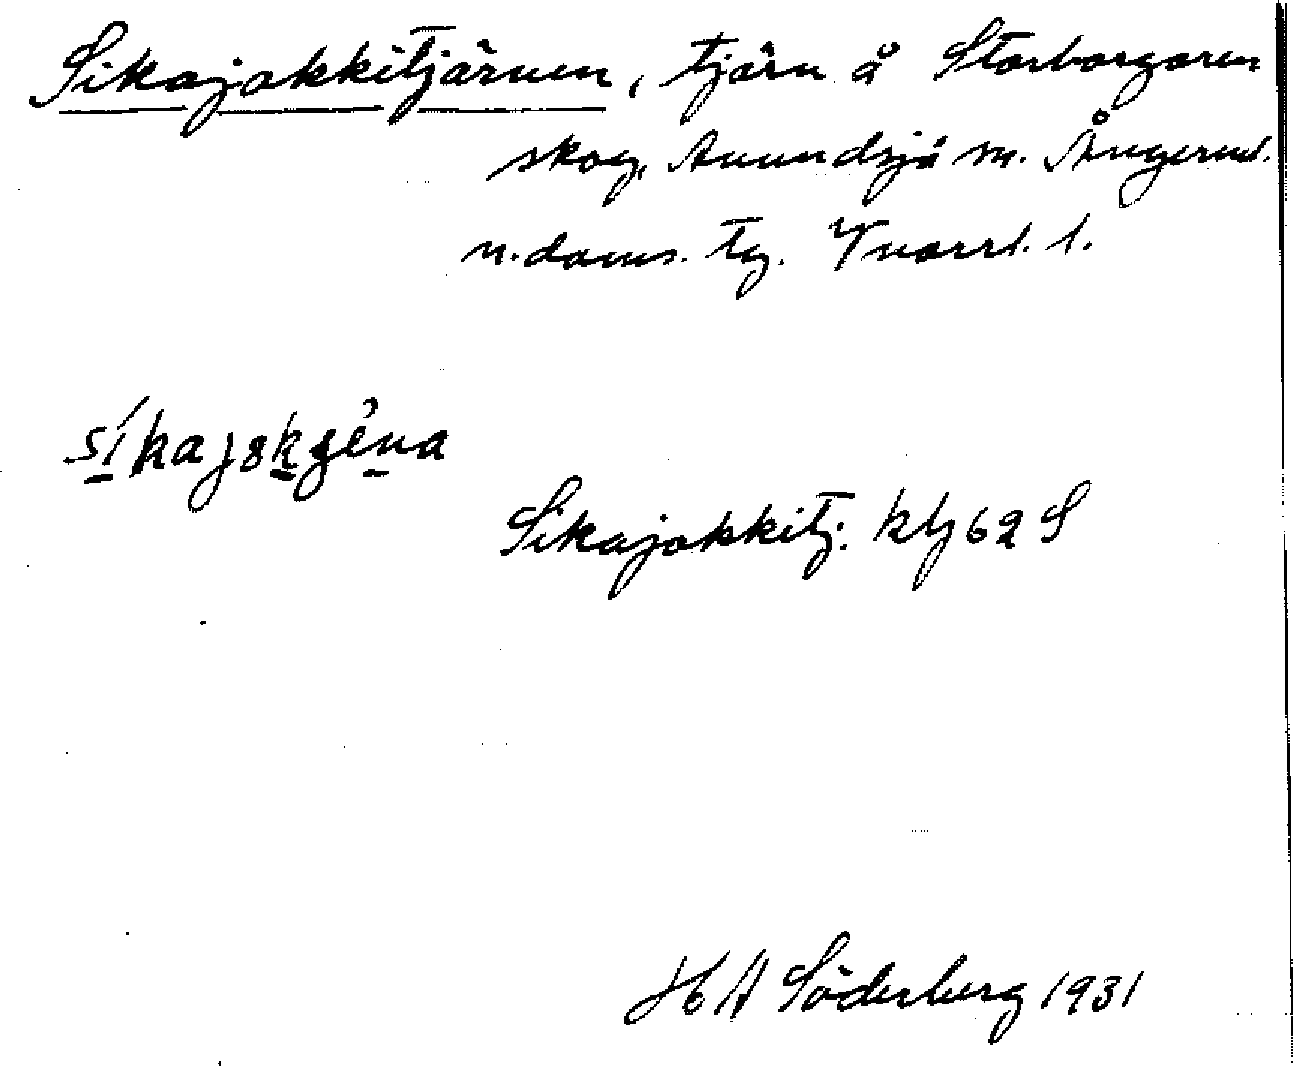 Sikajokkitjärnen, tjärn å Storborgaren
skog, Anundsjö sn. Ångerml.
n. doms. tg. Vnorrl. l.
Sikajokkitj. kbl 62 S
H A Söderberg 1931